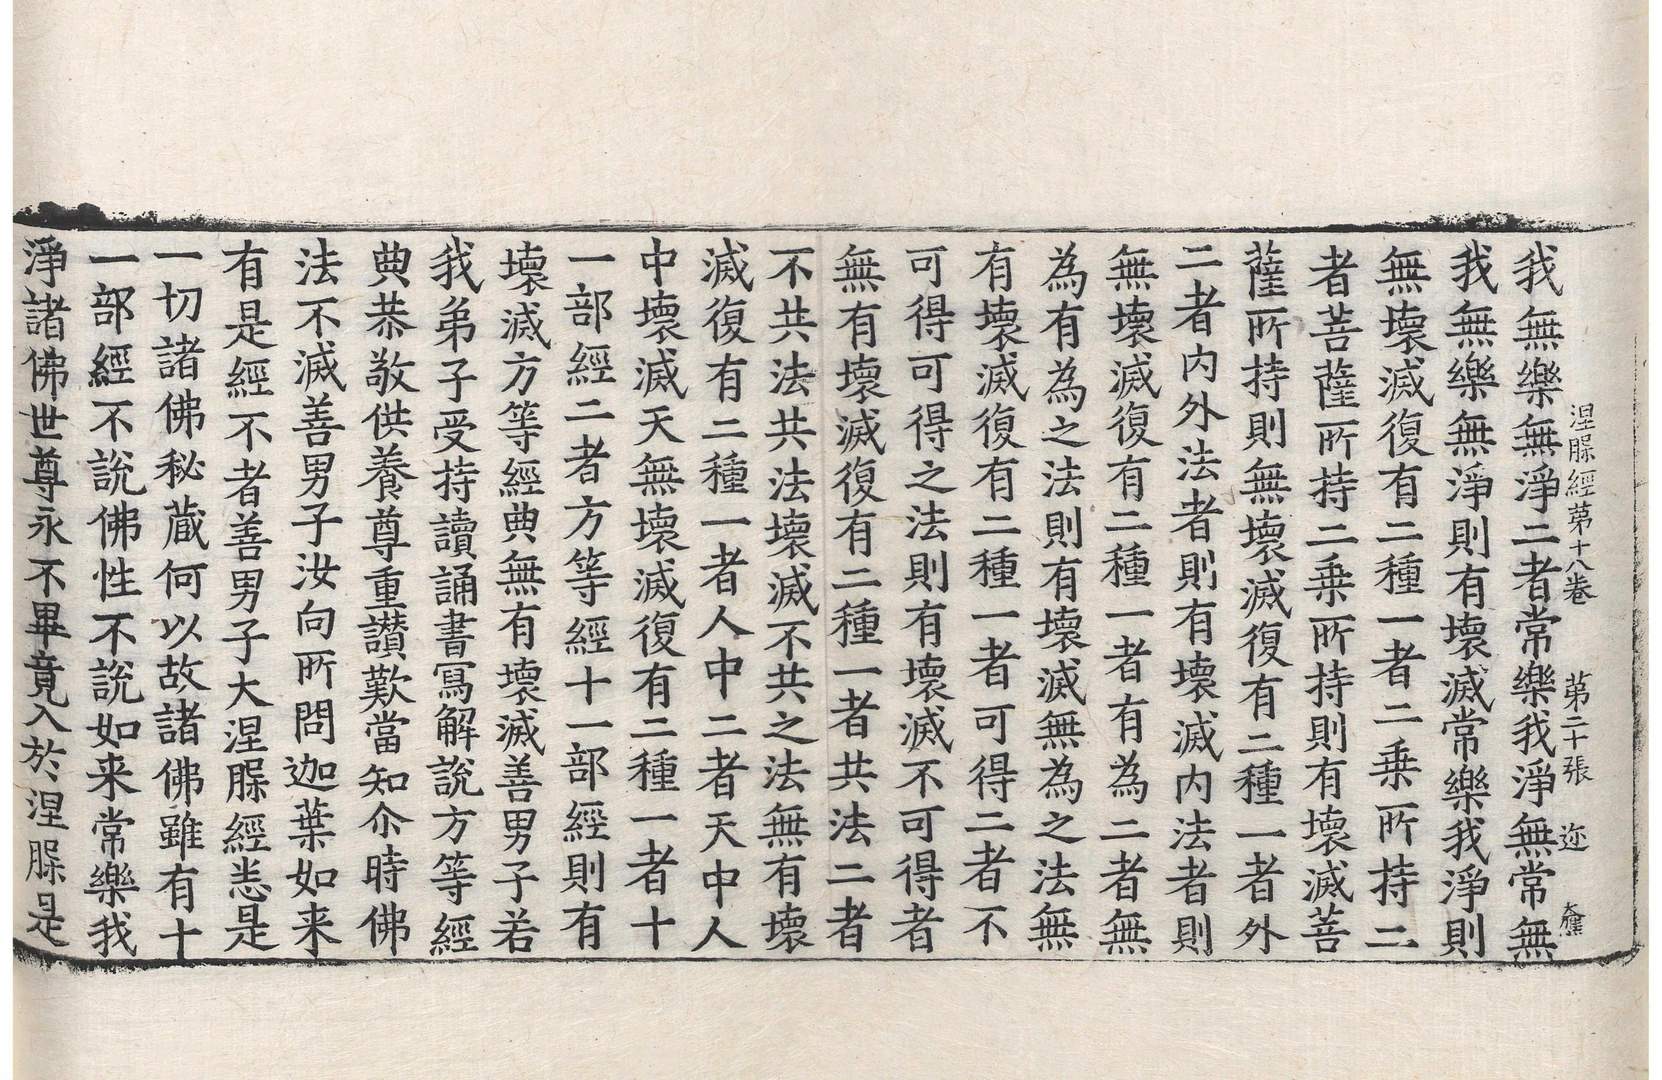 涅槃經第十八卷 第二十張 迩
我無樂無淨二者常樂我淨無常無
我無樂無淨則有壞滅常樂我淨則
無壞滅復有二種一者二乘所持二
者菩薩所持二乘所持則有壞滅菩
薩所持則無壞滅復有二種一者外
二者內外法者則有壞滅內法者則
無壞滅復有二種一者有為二者無
為有為之法則有壞滅無為之法無
有壞滅復有二種一者可得二者不
可得可得之法則有壞滅不可得者
無有壞滅復有二種一者共法二者
不共法共法壞滅不共之法無有壞
滅復有二種一者人中二者天中人
中壞滅天無壞滅復有二種一者十
一部經二者方等經十一部經則有
壞滅方等經典無有壞滅善男子若
我弟子受持讀誦書寫解說方等經
典恭敬供養尊重讚歎當知尒時佛
法不滅善男子汝向所問迦葉如来
有是經不者善男子大涅槃經悉是
一切諸佛秘藏何以故諸佛雖有十
一部經不說佛性不說如来常樂我
淨諸佛世尊永不畢竟入於涅槃是